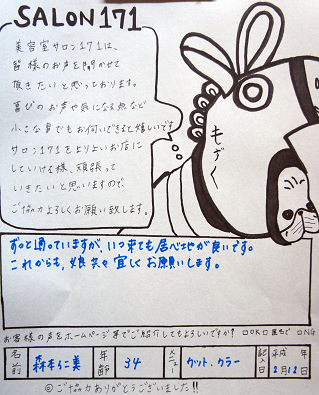 SALON171
美容室サロン171は、
皆様のお声を聞かせて
頂きたいと思っております。
喜びのお声や気になる点など
小さな事でもお伺いできると嬉しいです
サロン171をよりよいお店に
していける様、頑張って
いきたいと思いますので、
ご協力よろしくお願い致します。
もずく
ずっと通っていますが、いつ来ても居心地が良いです。
これからも、娘共々宜しくお願いします。
お客様の声をホームページ等でご紹介してもよろしいですか? □OK □匿名で □NG
名前 森本仁美 年齢 34 メニュー カット、カラー 記入日 平成 年 2月12日
ご協力ありがとうございました!!